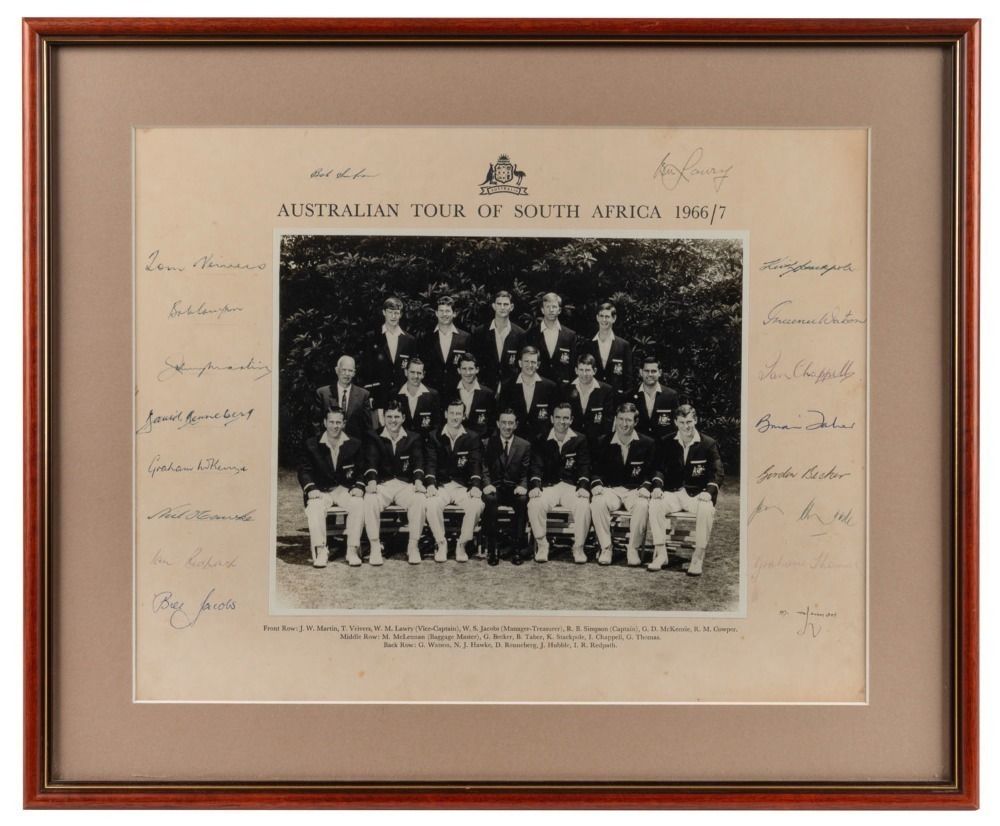 Bob Simpson
Bill Lawry
AUSTRALIA
AUSTRALIAN TOUR OF SOUTH AFRICA 1966/7
Tom Veivers
Bob Cowper
David Renneberg
Graham McKenzie
Neil J Hawke
Ian Redpath
Bill Jacobs
Keith Stackpole
Graeme Watson
Ian Chappell
Brian Taber
Gordon Becker
Jim Hubble
Grahame Thomas
Front Row: J. W. Martin, T. Veivers, W. M. Lawry (Vice-Captain), W. S. Jacobs (Manager-Treasurer), R. B. Simpson (Captain), G. D. McKenzie, R. M. Cowper.
Middle Row: M. McLennan (Baggage Master), G. Becker, B. Taber, K. Stackpole, I. Chappell, G. Thomas.
Back Row: G. Watson, N. J. Hawke, D. Renneberg, J. Hubble, I. R. Redpath.